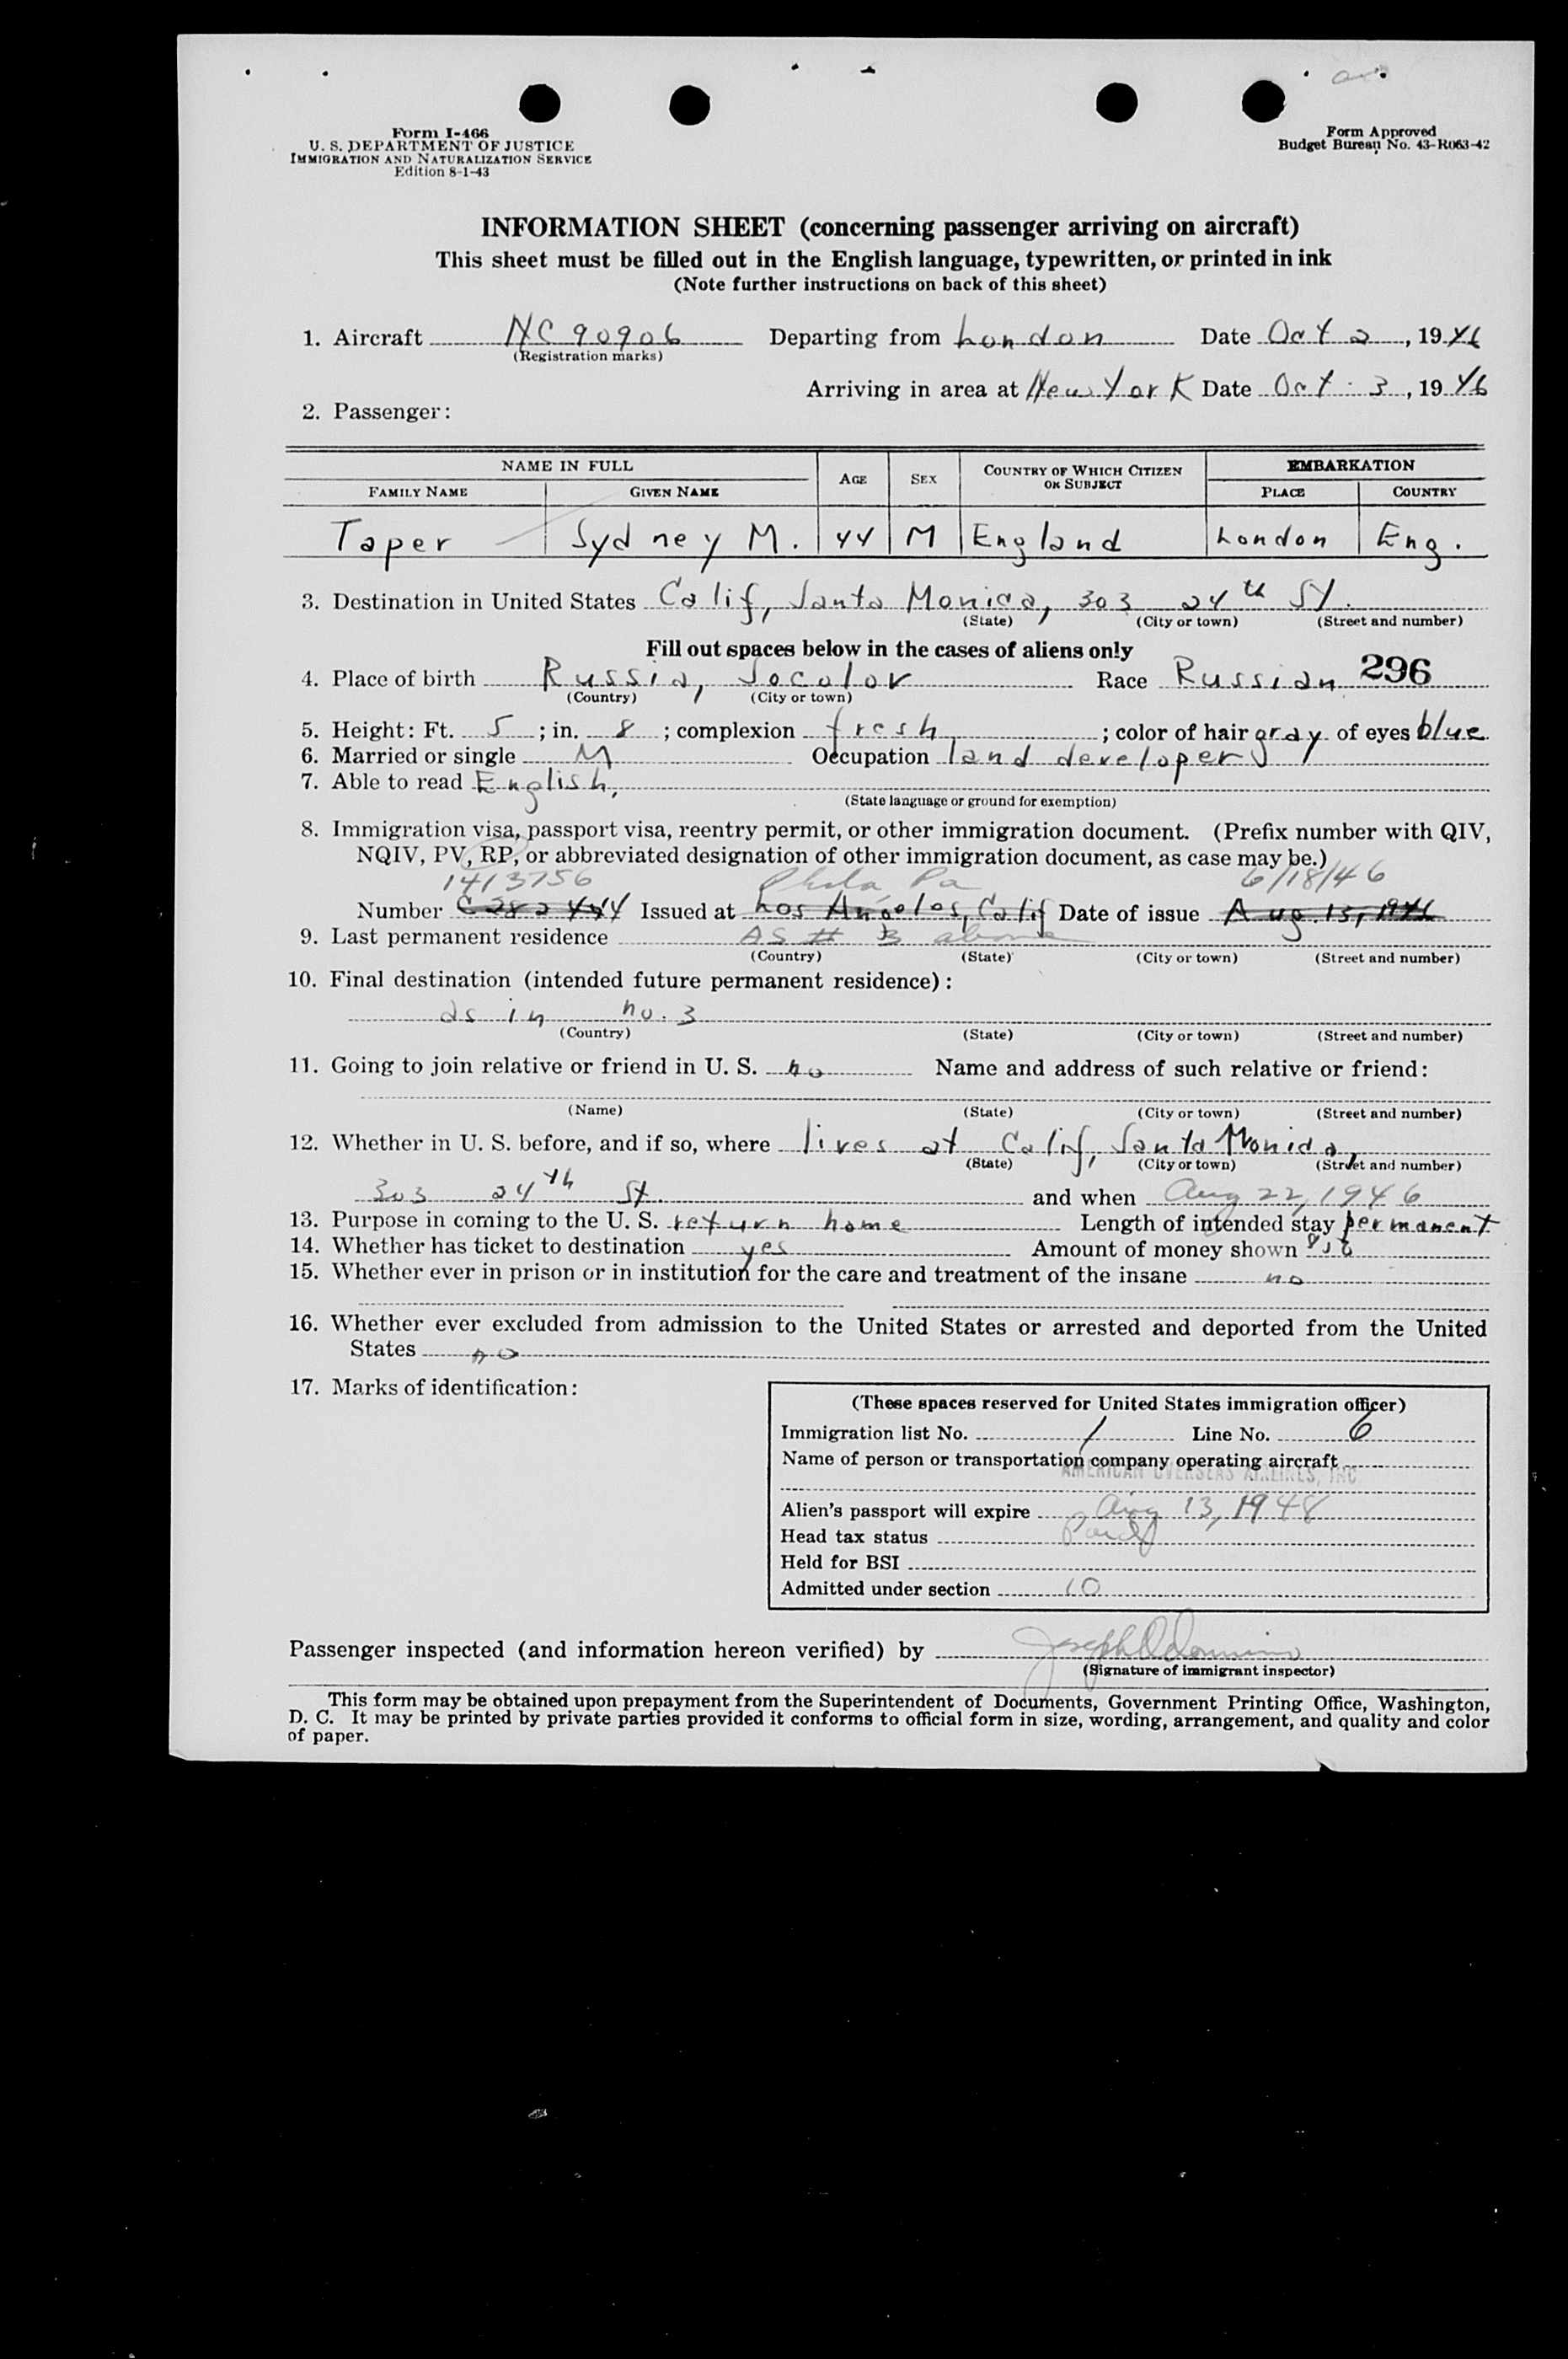 Form I-466
U. S. DEPARTMENT OF JUSTICE
IMMIGRATION AND NATURALIZATION SERVICE
Edition 8-1-43
Form Approved
Budget Bureau No. 43-R063-42
INFORMATION SHEET (concerning passenger arriving on aircraft)
This sheet must be filled out in the English language, typewritten, or printed in ink
(Note further instructions on back of this sheet)
1. Aircraft NC 90906 Departing from London Date Oct 2, 1946
(Registration marks)
Arriving in area at New York Date Oct. 3, 1946
2. Passenger:
NAME IN FULL AGE SEX COUNTRY OF WHICH CITIZEN OR SUBJECT EMBARKATION
FAMILY NAME GIVEN NAME PLACE COUNTRY
Taper Sydney M. 44 M England London Eng.
3. Destination in United States Calif, Santa Monica, 303 24th St.
(State) (City or town) (Street and number)
Fill out spaces below in the cases of aliens only
4. Place of birth Russia, Socolov Race Russian 296
(Country) (City or town)
5. Height: Ft. 5; in. 8; complexion fresh; color of hair gray of eyes blue
6. Married or single M Occupation land developer
7. Able to read English,
(State language or ground for exemption)
8. Immigration visa, passport visa, reentry permit, or other immigration document. (Prefix number with QIV,
NQIV, PV, RP, or abbreviated designation of other immigration document, as case may be.)
1413756 Phila Pa 6/18/46
Number Issued at Los Angeles, Calif Date of issue Aug. 13, 1946
9. Last permanent residence AS # 3 above
(Country) (State) (City or town) (Street and number)
10. Final destination (intended future permanent residence):
as in no. 3
(Country) (State) (City or town) (Street and number)
11. Going to join relative or friend in U. S. no Name and address of such relative or friend:
(Name) (State) (City or town) (Street and number)
12. Whether in U. S. before, and if so, where lives at Calif, Santa Monica,
(State) (City or town) (Street and number)
303 24th St. and when Aug 22, 1946
13. Purpose in coming to the U. S. return home Length of intended stay permanent
14. Whether has ticket to destination yes Amount of money shown
15. Whether ever in prison or in institution for the care and treatment of the insane no
16. Whether ever excluded from admission to the United States or arrested and deported from the United
States no
17. Marks of identification:
(These spaces reserved for United States immigration officer)
Immigration list No. 1 Line No. 6
Name of person or transportation company operating aircraft
AMERICAN OVERSEAS AIRLINES, INC.
Alien's passport will expire Aug 13, 1948
Head tax status Paid
Held for BSI
Admitted under section 10
Passenger inspected (and information hereon verified) by Joseph
(Signature of immigrant inspector)
This form may be obtained upon prepayment from the Superintendent of Documents, Government Printing Office, Washington,
D. C. It may be printed by private parties provided it conforms to official form in size, wording, arrangement, and quality and color
of paper.